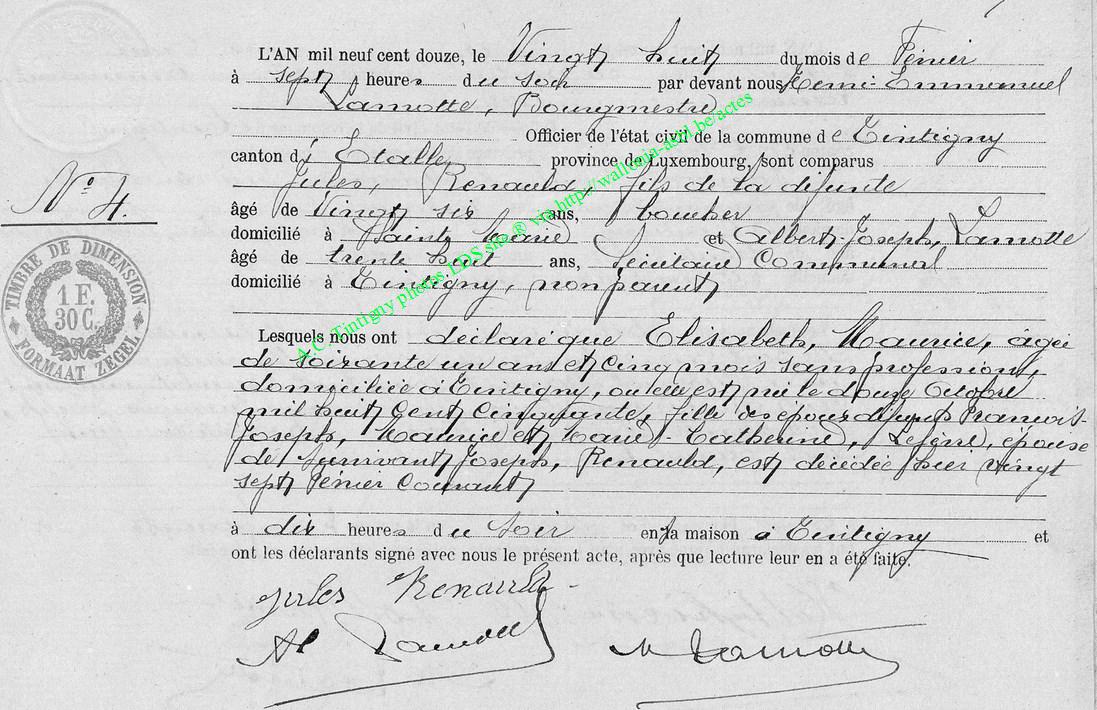 L'AN mil neuf cent douze, le Vingt huit du mois de Février
à sept heures du soir par devant nous Remi-Emmanuel
Lamotte, Bourgmestre
Officier de l'état civil de la commune de Tintigny
canton d'Etalle province de Luxembourg, sont comparus
Jules, Renauld, fils de la défunte
âgé de Vingt six ans, boucher
domicilié à Sainte Marie et Albert-Joseph, Lamotte
âgé de trente huit ans, Secrétaire Communal
domicilié à Tintigny, non parent
N° 4.
TIMBRE DE DIMENSION
1 F.
30 C.
FORMAAT ZEGEL
A.C. Tintigny photos LDS site ® via http://wallonia-asbl.be/actes
Lesquels nous ont déclaré que Elisabeth, Maurice, âgée
de soixante un ans et cinq mois sans profession,
domiciliée à Tintigny, où elle est née le douze Octobre
mil huit cent cinquante, fille des époux défunts François-
Joseph, Maurice et Marie-Catherine, épouse
de survivant Joseph, Renauld, est décédée hier vingt
sept Février Courant
à dix heures du soir en la maison à Tintigny et
ont les déclarants signé avec nous le présent acte, après que lecture leur en a été faite.
Jules Renauld
A Lamotte
Lamotte